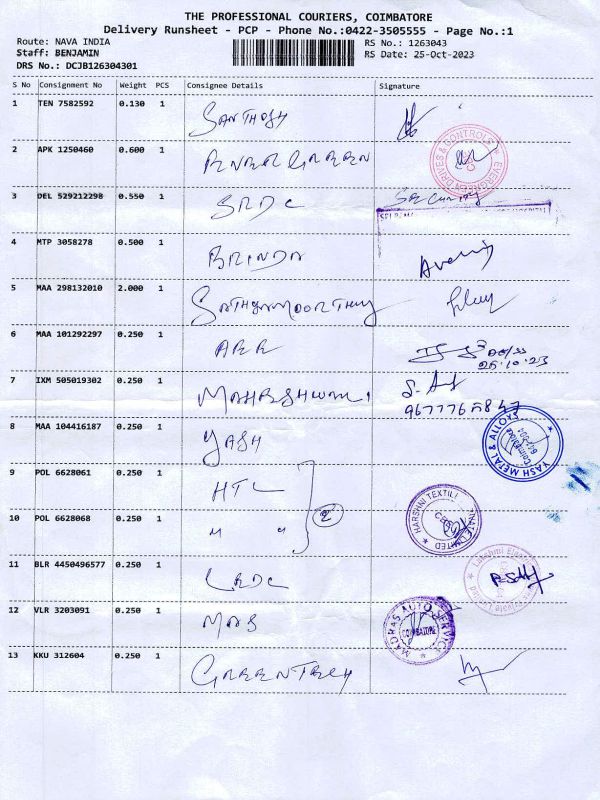 THE PROFESSIONAL COURIERS, COIMBATORE
Delivery Runsheet - PCP - Phone No.:0422-3505555 - Page No.:1
Route: NAVA INDIA
RS No.: 1263043
Staff: BENJAMIN
RS Date: 25-Oct-2023
DRS No.: DCJB126304301
S No Consignment No Weight PCS Consignee Details Signature
1 TEN 7582592 0.130 1 SANTHOSH
2 APK 1250460 0.600 1 EVERGREEN
EVERGREEN DRIVES & CONTROLS
3 DEL 529212298 0.550 1 SRDC Security
4 MTP 3058278 0.500 1 BRINDA
5 MAA 298132010 2.000 1 SATHYAMOORTHY
6 MAA 101292297 0.250 1 ARR
25.10.23
7 IXM 505019302 0.250 1 MAHESHWARI
8 MAA 104416187 0.250 1 YASH
YASH METAL & ALLOYS
Coimbatore
9 POL 6628061 0.250 1 HTL
2
10 POL 6628068 0.250 1 " "
HARSHNI TEXTILES LIMITED
11 BLR 4450496577 0.250 1 LRDC
12 VLR 3203091 0.250 1 MAS
MADRAS AUTO SERVICE
COIMBATORE
13 KKU 312604 0.250 1 GREENTECH